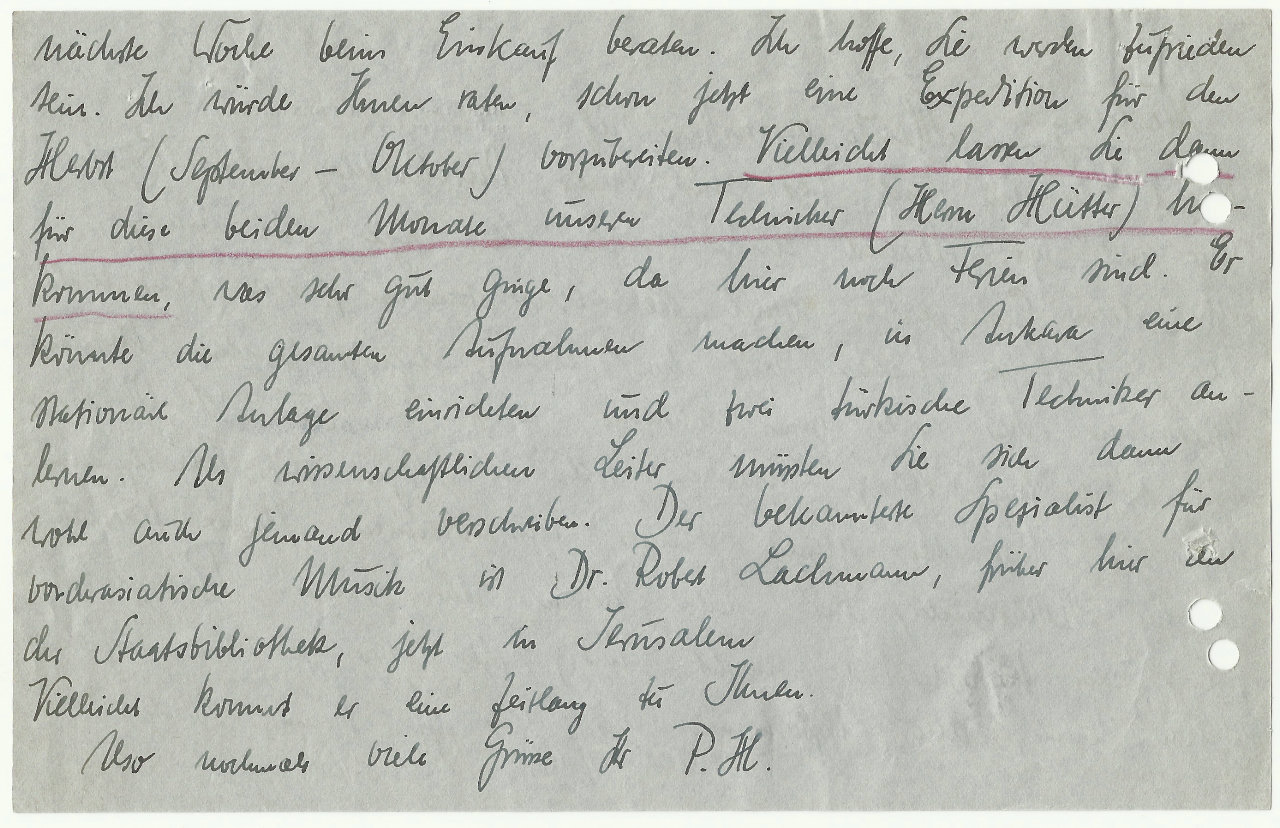 nächste Woche beim Einkauf beraten. Ich hoffe, Sie werden zufrieden
sein. Ich würde Ihnen raten, schon jetzt eine Expedition für den
Herbst (September – Oktober) vorzubereiten. Vielleicht lassen Sie dann
für diese beiden Monate unseren Techniker (Herrn Hütter)
kommen, was sehr gut ginge, da hier noch Ferien sind. Er
könnte die gesamten Aufnahmen machen, in Ankara eine
stationäre Anlage einrichten und zwei türkische Techniker an-
lernen. Als wissenschaftlichen Leiter müssten Sie sich dann
wohl auch jemand verschreiben. Der bekannteste Spezialist für
vorderasiatische Musik ist Dr. Robert Lachmann, früher hier an
der Staatsbibliothek, jetzt in Jerusalem
Vielleicht kommt er eine Zeitlang zu Ihnen.
Also nochmals viele Grüsse Ihr P. H.